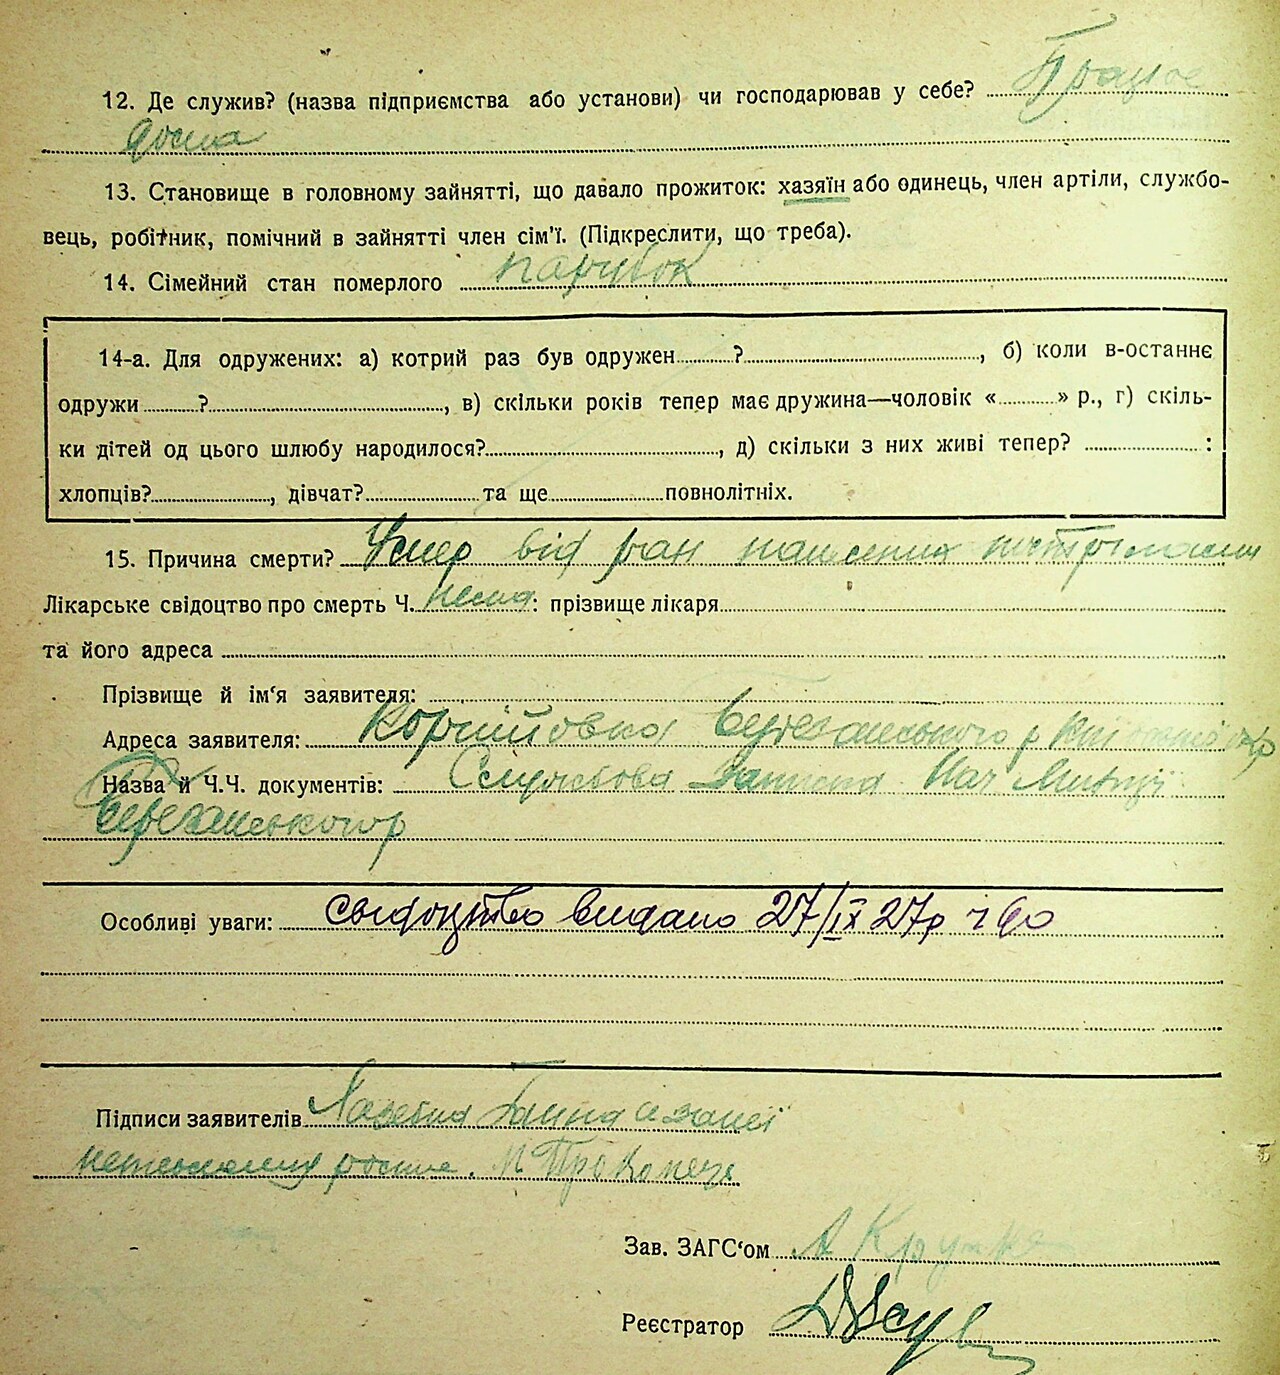 12. Де служив? (назва підприємства або установи) чи господарював у себе? Працює
дома
13. Становище в головному зайнятті, що давало прожиток: хазяїн або одинець, член артіли, службо-
вець, робітник, помічний в зайнятті член сім'ї. (Підкреслити, що треба).
14. Сімейний стан померлого парубок
14-а. Для одружених: а) котрий раз був одружен ? , б) коли в-останнє
одружи ? , в) скільки років тепер має дружина—чоловік « » р., г) скіль-
ки дітей од цього шлюбу народилося? , д) скільки з них живі тепер? :
хлопців? , дівчат? та ще повнолітніх.
15. Причина смерти? Умер від ран нанесених пострілами
Лікарське свідоцтво про смерть Ч. нема: прізвище лікаря
та його адреса
Прізвище й ім'я заявителя:
Адреса заявителя: Корніївка Березанського р
Назва й Ч.Ч. документів: Службова записка Нач Міліції
Березанського р
Особливі уваги: свідоцтво видано 27/IX 27р ч 60
Підписи заявителів Ганна а за неї
неписьменну росписе. М Прокопець
Зав. ЗАГС'ом А
Реєстратор